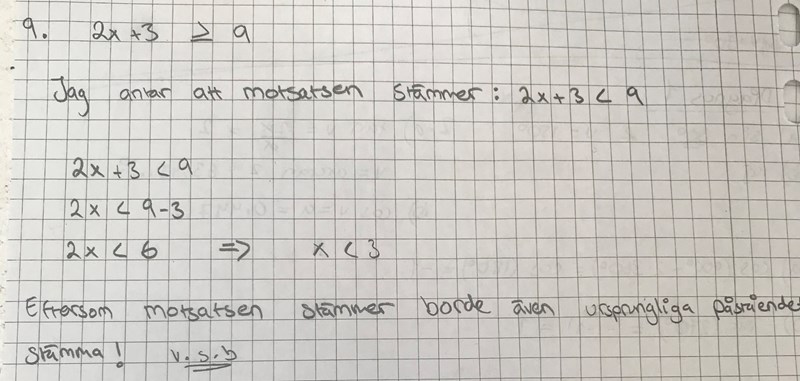 9. 2x+3 ≥ 9
Jag antar att motsatsen stämmer: 2x+3 < 9
2x+3 < 9
2x < 9-3
2x < 6 => x < 3
Eftersom motsatsen stämmer borde även ursprungliga påståendet
stämma! v.s.b